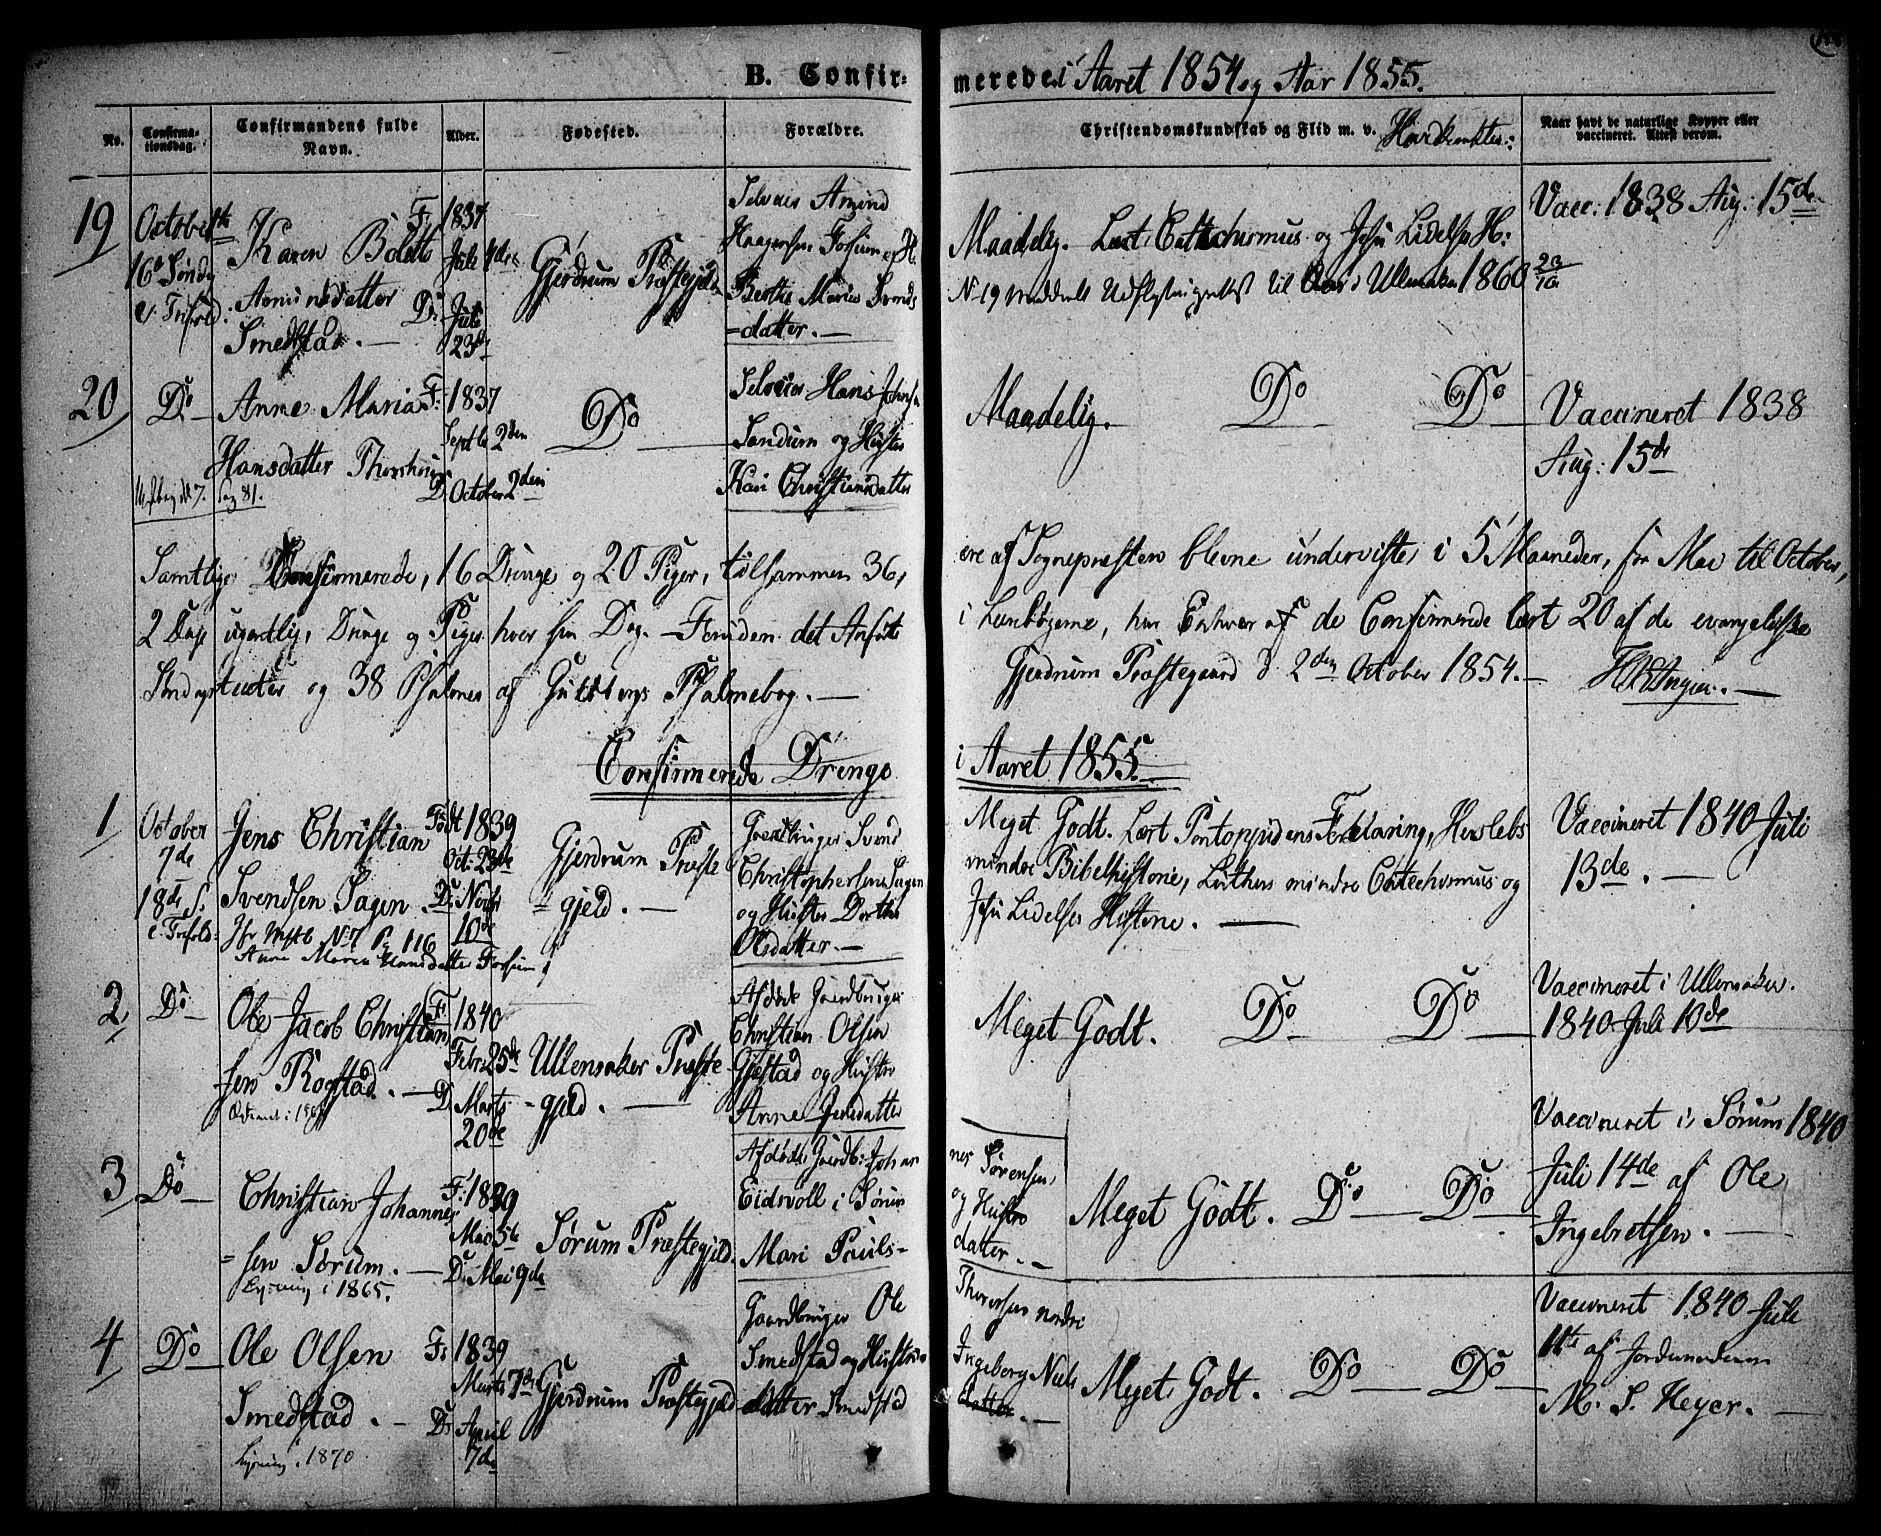 B. Confirmerede i Aaret 1854 og Aar 1855.
No.
Confirma-
tionsdag.
Confirmandens fulde
Navn.
Alder.
Fødested.
Forældre.
Christendomskundskab og Flid m. v.
Naar havt de naturlige Kopper eller
vaccineret. Attest derom.
19
October
16de Sønd.
e. Trifold.
Karen Bolette
Asmundsdatter
Smedstad. —
F. 1837
Juli 4de
D. Juli
23de
Gjerdrum Præstegjeld
Selveier Asmund
Haagensen Fossum og H.
Berthe Marie Svends
=datter. —
Maadelig. Læst Catechismus og Jesu Lidelses H:
No 19 meddeelt Udflytningsattest til Ullensaker 1860 23/10
Vacc: 1838 Aug: 15de
20
Do
Anne Maria
Hansdatter
Pag 81.
F: 1837
Septbr 2den
D. October 2den
Do
Selveier Hans
og Hustru
Kari Christiansdatter
Maadelig. Do Do
Vaccineret 1838
Aug: 15de
Samtlige Confirmerede, 16 Drenge og 20 Piger, tilsammen 36,
ere af Sognepræsten blevne underviste i 5 Maaneder, fra Mai til October,
2 Dage ugentlig, Drenge og Piger hver sin Dag. – Foruden det Anførte
i Lærebøgerne, har Enhver af de Confirmerede lært 20 af de evangeliske
Søndagstexter og 38 Psalmer af Guldbergs Psalmebog. —
Gjerdrum Præstegaard d 2den October 1854. —
Confirmerede Drenge
i Aaret 1855.
1
October
7de
18de S.
e. Trifold:
Jens Christian
Svendsen Sagen.
No 7 Pg 116
Anne Maria Hansdatter Fossum
Født 1839
Oct: 23de
D. Novbr
10de
Gjerdrum Præste
= gjeld. —
Gaardbruger Svend
Christophersen Sagen
og Hustru Dorthe
Olsdatter. —
Meget Godt. Læst Pontoppidens Forklaring, Herslebs
mindre Bibelhistorie, Luthers mindre Catechismus og
Jesu Lidelses Historie. —
Vaccineret 1840 Juli
13de. —
2
Do
Ole Jacob Christian
sen Rogstad. —
F. 1840
Febr 25de
D. Marts
20de
Ullensaker Præste
= gjeld. —
Afdøde Gaardbruger
Christian Olsen
Gjestad og Hustru
Anne Jensdatter
Meget Godt. Do Do
Vaccineret i Ullensaker.
1840 Juli 10de
3
Do
Christian Johannes
= sen Sørum. —
Lysning i 1865.
F. 1839
Mai 5te
D. Mai 9de
Sørum Præstegjeld.
Afdøde Gaardb: Johan
nes Sørensen,
Eidsvoll i Sørum
og Hustru
Mari Pauls-
datter. —
Meget Godt. Do Do
Vaccineret i Sørum 1840
Juli 14de af Ole
Ingebretsen. —
4
Do
Ole Olsen
Smedstad. —
Lysning i 1870
F. 1839
Marts 7de
D. April
7de
Gjerdrum Præstegjeld
Gaardbruger Ole
Thoresen nordre
Smedstad og Hustru
Ingeborg Niels
datter Smedstad
datter. —
Meget Godt. Do Do
Vaccineret 1840 Juli
11te af Jordemoderen
M. S. Heyer. —